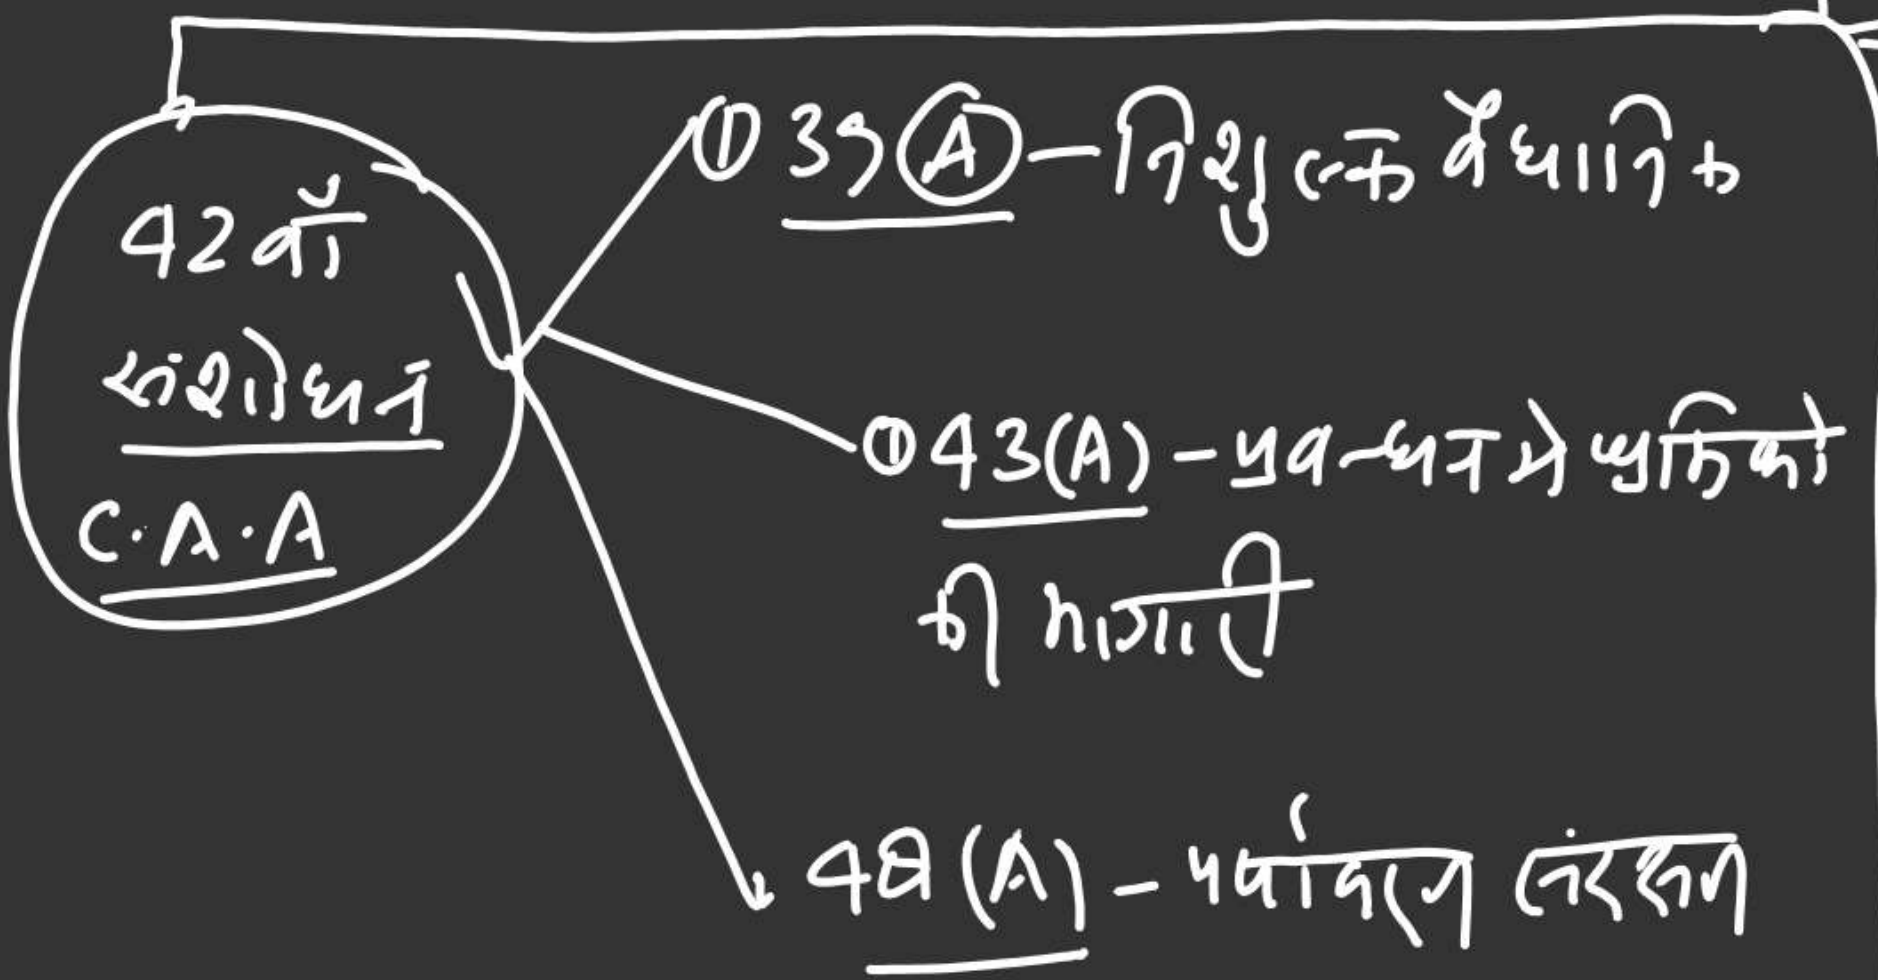 42वाँ
संशोधन
C.A.A
① 39(A) – निशुल्क वैधानिक
① 43(A) – प्रबन्धन मे श्रमिको
की भागीदारी
48(A) – पर्यावरण संरक्षण